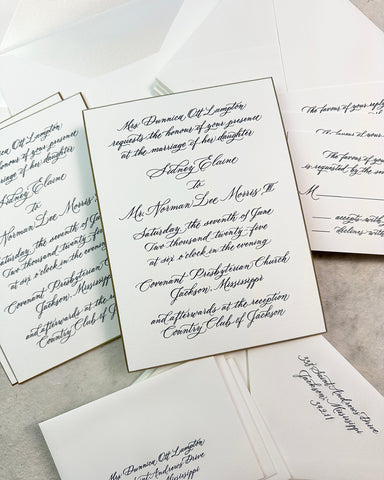 Mrs. Dunnica Ott Lampton
requests the honour of your presence
at the marriage of her daughter
Sidney Elaine
to
Mr. Norman Lee Morris, III
Saturday, the seventh of June
Two thousand, twenty-five
at six o'clock in the evening
Covenant Presbyterian Church
Jackson, Mississippi
and afterwards at the reception
Country Club of Jackson
Dunnica Ott Lampton
honour of your presence
marriage of her daughter
Sidney Elaine
to
Norman Lee Morris
Saturday, the seventh of
Two thousand, twenty-five
at six o'clock in the evening
Covenant Presbyterian
Jackson, Mississippi
and afterwards at the
Country Club of
The favour of your
The favour of your
The favour of your
is requested by the
M
accepts
declines
Mrs. Dunnica Ott Lampton
Saint Andrews Drive
Jackson, Mississippi
Saint Andrews Drive
Jackson, Mississippi
39211